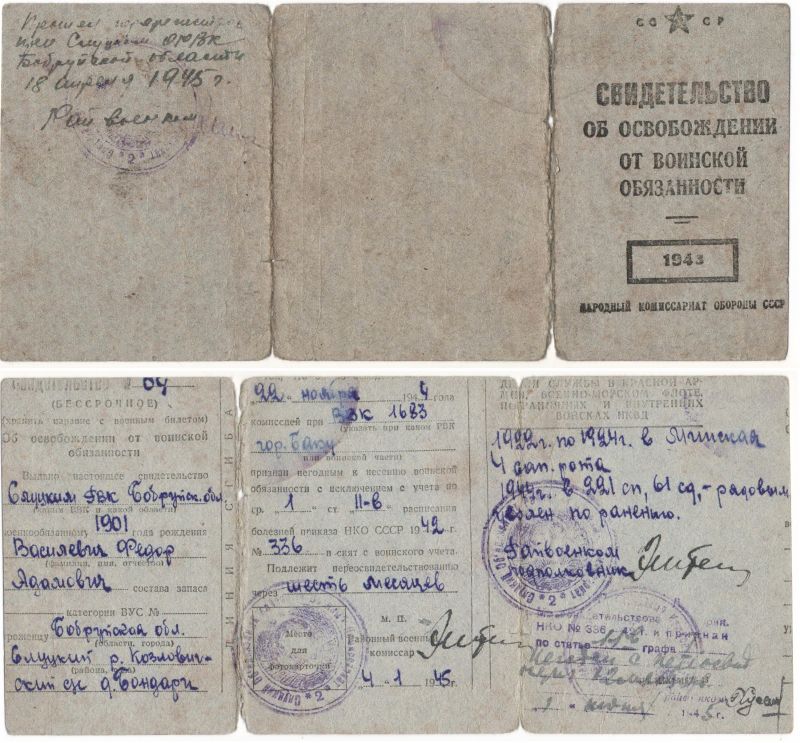 Прошел перерегистрац
при Слуцком ОРВК
Бобруйской области
18 апреля 1945 г.
Райвоенком
СССР
СВИДЕТЕЛЬСТВО
ОБ ОСВОБОЖДЕНИИ
ОТ ВОИНСКОЙ
ОБЯЗАННОСТИ
1943
НАРОДНЫЙ КОМИССАРИАТ ОБОРОНЫ СССР
СВИДЕТЕЛЬСТВО №
(БЕССРОЧНОЕ)
(хранить наравне с военным билетом)
Об освобождении от воинской
обязанности
Выдано настоящее свидетельство
Слуцким РВК Бобруйск. обл.
(каким РВК и какой области)
военнообязанному 1901 года рождения
Василевич Федор
(фамилия, имя, отчество)
Адамович состава запаса
категории ВУС №
уроженцу Бобруйская обл.
(области, города)
Слуцкий р. Козлович-
(района, села)
ский с/с д. Бондари
ЛИНИЯ СГИБА
22 ноября 1944 года
комиссией при ВВК 1683
(указать при каком РВК
гор. Баку
или воинской части)
признан негодным к несению воинской
обязанности с исключением с учета по
гр. 1 ст II-в расписания
болезней приказа НКО СССР 1942 г.
№ 336 и снят с воинского учета.
Подлежит переосвидетельствованию
через шесть месяцев
М. П.
Место
для
фотокарточки
Районный военный
комиссар
4 1 1945
СЛУЖБЫ В КРАСНОЙ АР-
МИИ, ВОЕННО-МОРСКОМ ФЛОТЕ,
ПОГРАНИЧНЫХ И ВНУТРЕННИХ
ВОЙСКАХ НКВД
1922 г. по 1924 г. в Минская
4 сап. рота
в 221 сп, 61 сд, - рядовым
уволен по ранению.
Райвоенком
подполковник
НКО № 336 и признан
по статье графа
1 июня 1945 г.